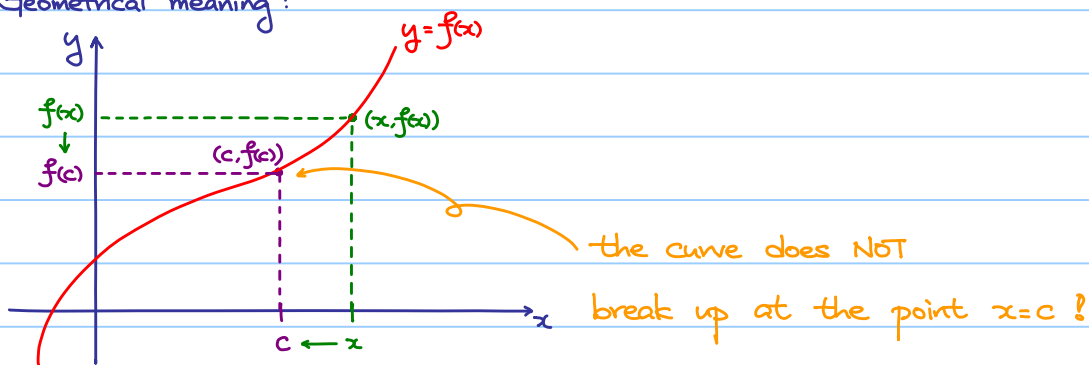 Geometrical meaning :
y
y = f(x)
f(x)
(x, f(x))
↓
f(c)
(c, f(c))
the curve does NOT
break up at the point x=c !
x
c ← x